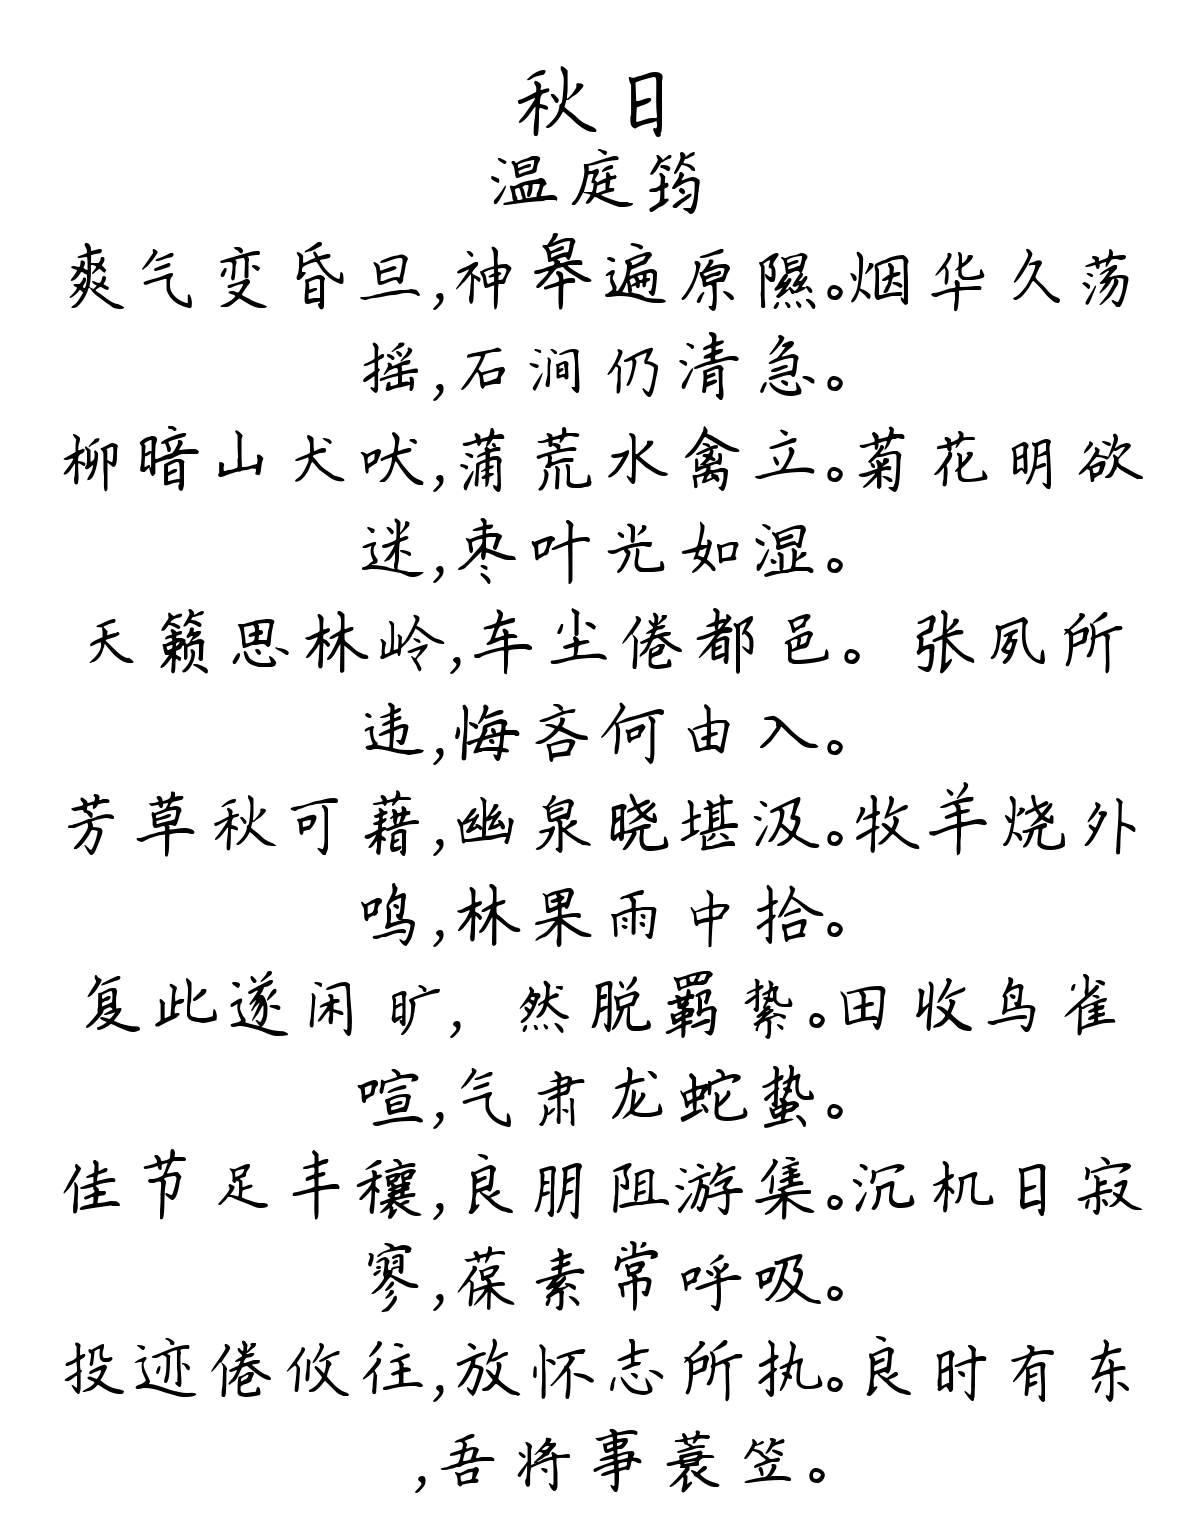 秋日
温庭筠
爽气变昏旦,神皋遍原隰。烟华久荡
摇,石涧仍清急。
柳暗山犬吠,蒲荒水禽立。菊花明欲
迷,枣叶光如湿。
天籁思林岭,车尘倦都邑。张夙所
违,悔吝何由入。
芳草秋可藉,幽泉晓堪汲。牧羊烧外
鸣,林果雨中拾。
复此遂闲旷,然脱羁絷。田收鸟雀
喧,气肃龙蛇蛰。
佳节足丰穰,良朋阻游集。沉机日寂
寥,葆素常呼吸。
投迹倦攸往,放怀志所执。良时有东
,吾将事蓑笠。